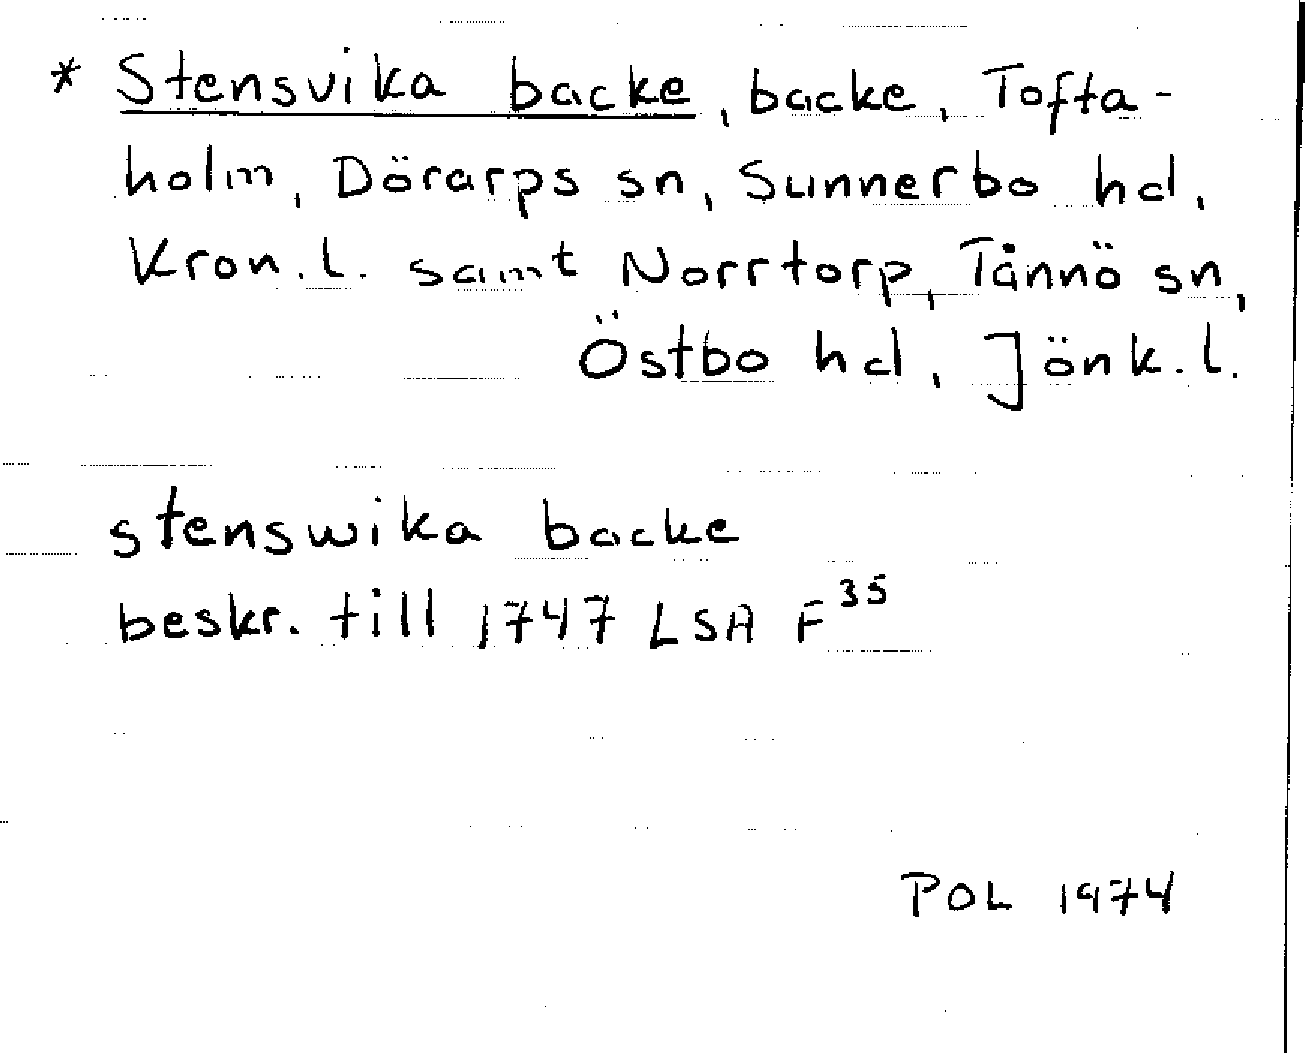 * Stensvika backe, backe, Tofta-
holm, Dörarps sn, Sunnerbo hd,
Kron.l. samt Norrtorp, Tånnö sn,
Östbo hd, Jönk.l.
stenswika backe
beskr. till 1747 LSA F³⁵
POL 1974